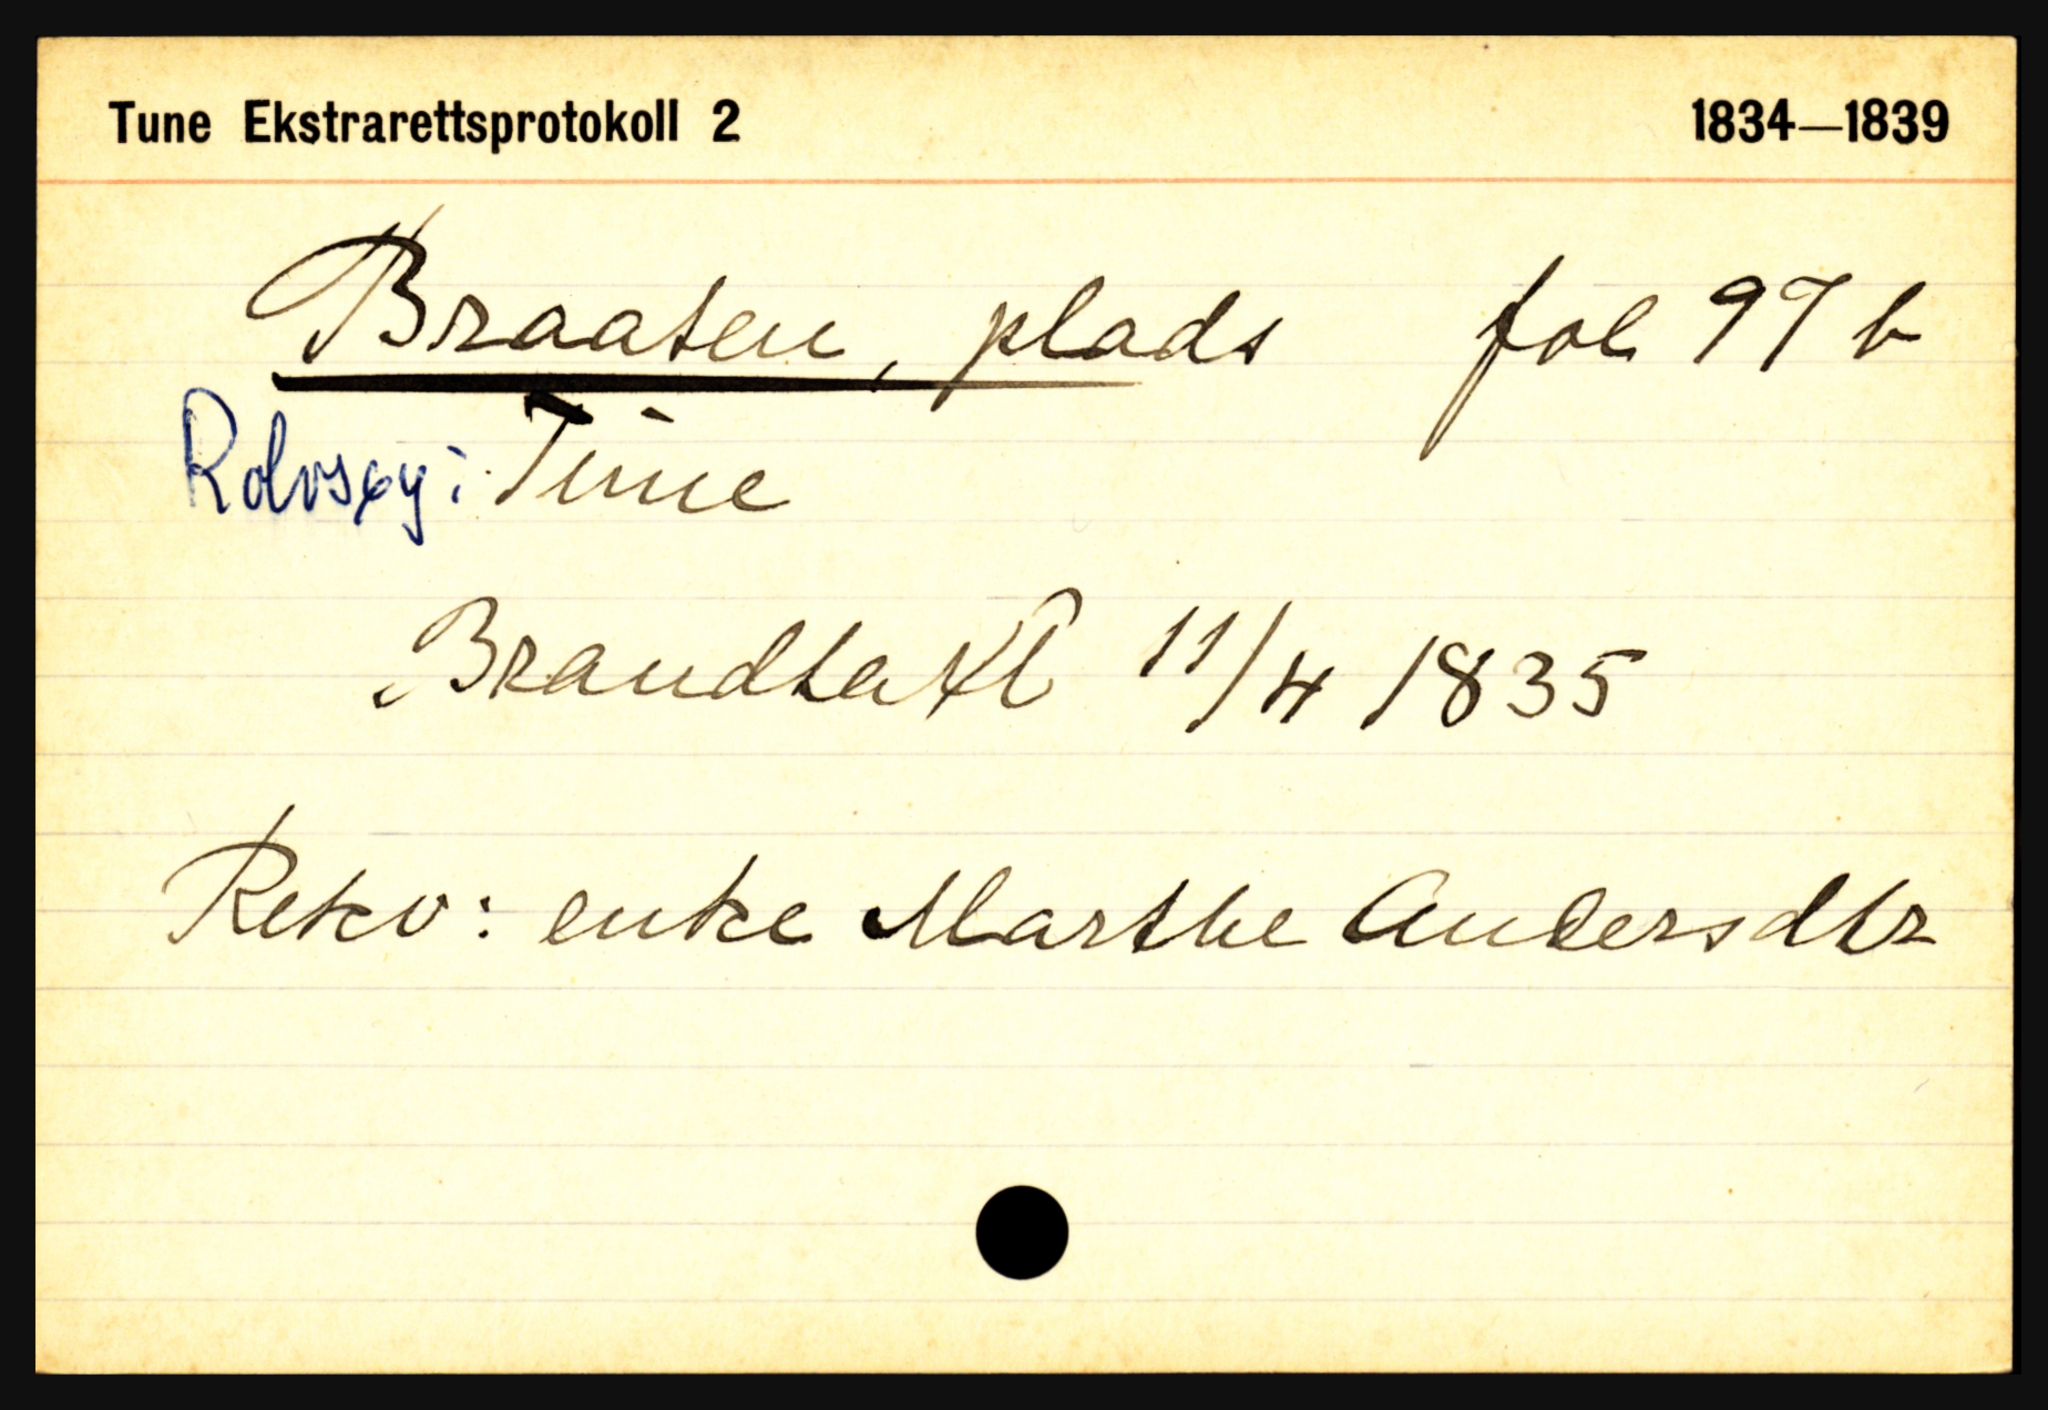 Tune Ekstrarettsprotokoll 2 1834—1839
Braaten, plads fol 97 b
Rolvsøy i Tune
Brandtaxt 11/4 1835
Rekv: enke Marthe Andersdtr